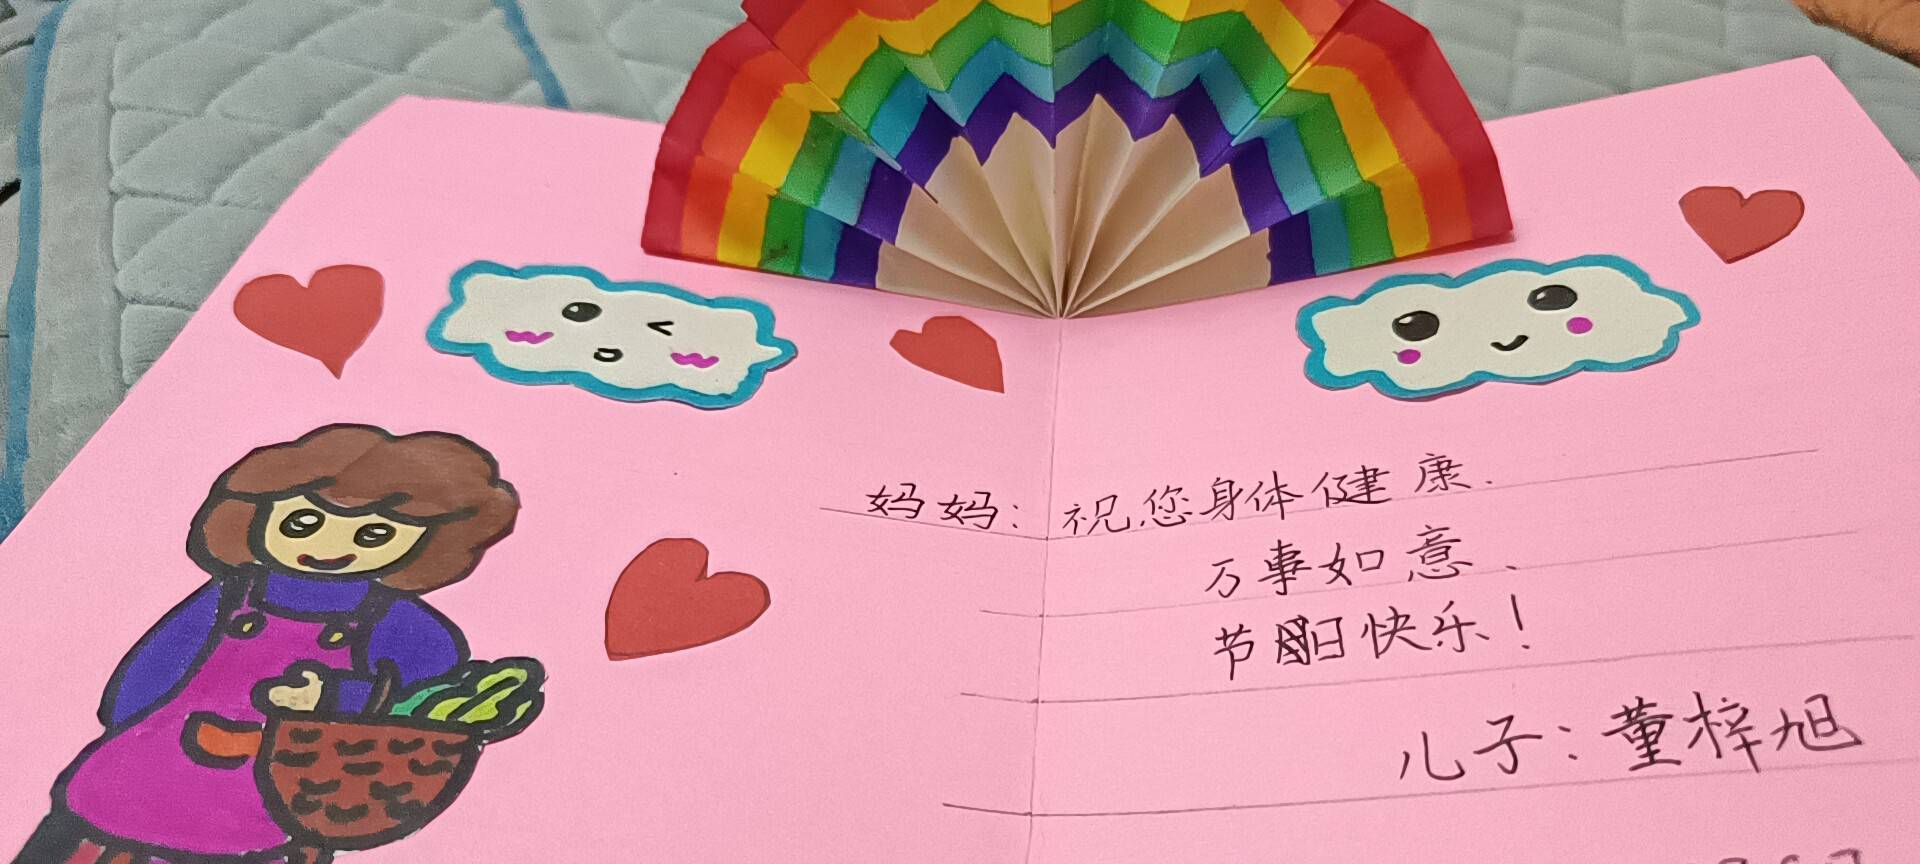 妈妈：祝您身体健康.
万事如意.
节日快乐！
儿子：董梓旭